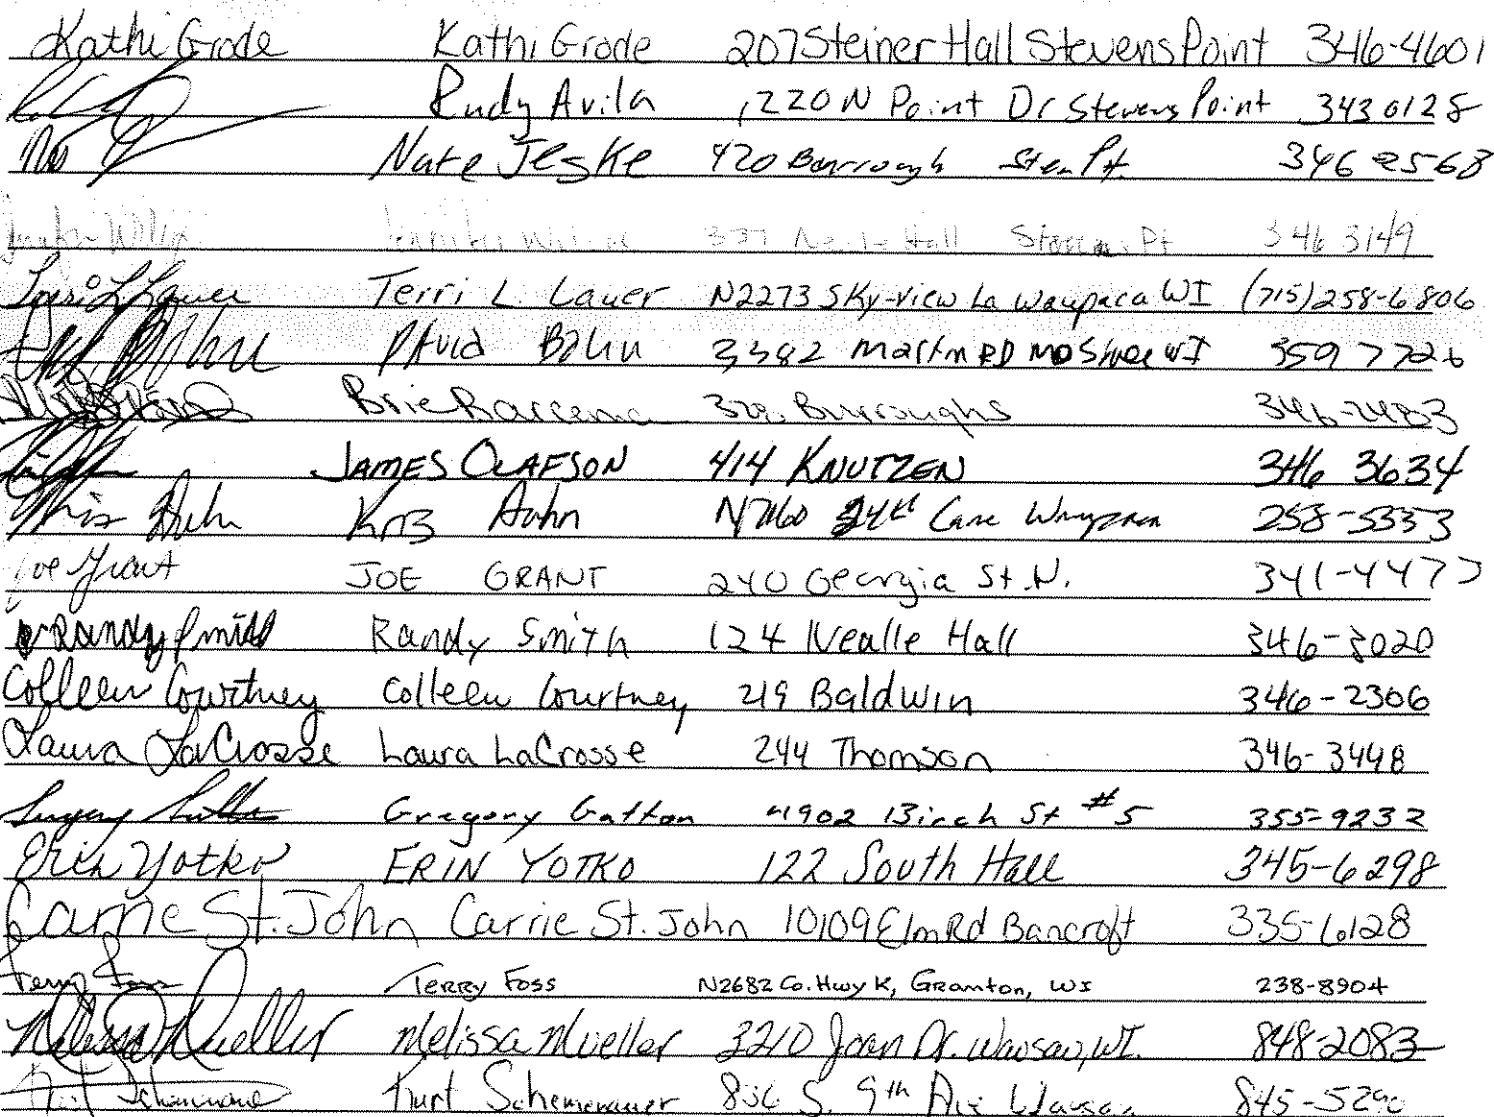 Kathi Grode Kathi Grode 207 Steiner Hall Stevens Point 346-4601
Rudy Avila 1220 N Point Dr Stevens Point 343 0128
Nate Jeske 420 Burrough Steven Pt. 346 2568
337 Neale Hall Stevens Pt 346 3149
Terri L Lauer Terri L. Lauer N2273 Sky-view La Waupaca WI (715)258-6806
David Bohn Martin RD Mosinee WI 359 7726
Brie Burroughs 346-2483
JAMES OLAFSON 414 KNUTZEN 346 3634
Kris Hahn Kris Hahn 258-5353
Joe Grant JOE GRANT 240 Georgia St N. 341-4477
Randy Smith Randy Smith 124 Nealle Hall 346-3020
Colleen Courtney Colleen Courtney 219 Baldwin 346-2306
Laura LaCrosse Laura LaCrosse 244 Thomson 346-3448
Gregory Gatton 1902 Birch St #5 355-9232
Erin Yotko ERIN YOTKO 122 South Hall 345-6298
Carrie St. John Carrie St. John 10109 Elm Rd Bancroft 335-6128
Terry Foss TERRY FOSS N2682 Co. Hwy K, Granton, WI 238-8904
Melissa Mueller Melissa Mueller 3210 Joan Dr. Wausau, WI. 848-2083
Kurt Schemenauer Kurt Schemenauer 836 S. 9th Ave Wausau 845-5290